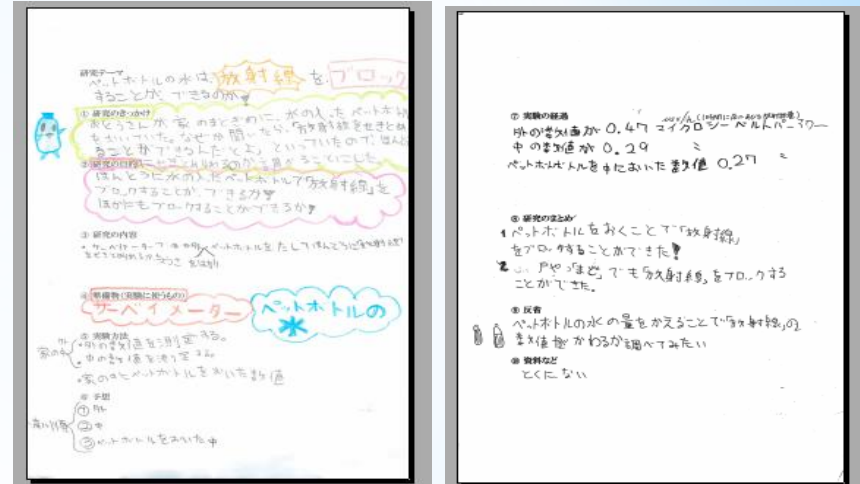 研究テーマ
ペットボトルの水は、放射線を、ブロック
することが、できるのか
① 研究のきっかけ
おとうさんが 家のまどぎわに、水の入ったペットボトル
をおいていた。なぜか聞いたら、「放射線をせきとめ
ることができるんだとよ」といっていたので、ほんと
② 研究の目的
ほんとうに水の入ったペットボトルで「放射線」を
ブロックすることが、できるか
ほかにもブロックすることができるか
③ 研究の内容
ペットボトルを
④ 準備物(実験に使うもの)
サーベイメーター
ペットボトルの
水
⑤ 実験方法
・外の数値を測定する。
家の
・中の数値を測定する。
・家の中とペットボトルをおいた数値
⑥ 予想
① 外
② 中
③ ペットボトルをおいた中
⑦ 実験の経過
外の数値が 0.47 マイクロシーベルトパーアワー
中の数値が 0.29 〃
ペットボトルを中においた数値 0.27 〃
⑧ 研究のまとめ
1 ペットボトルをおくことで「放射線」
をブロックすることができた!
2 戸や「まど」でも「放射線」をブロックする
ことができた。
⑨ 反省
ペットボトルの水の量をかえることで「放射線」の
数値が かわるか調べてみたい
⑩ 資料など
とくにない